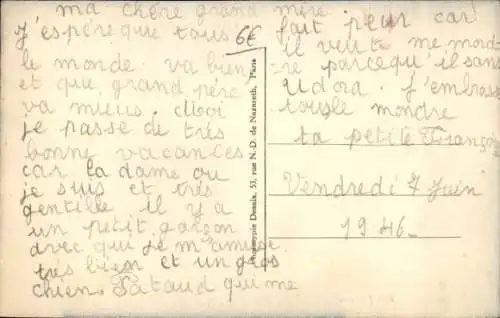 ma chère grand mère
J'espère que tous
le monde va bien
et que grand père
va mieus. Moi
je passe de très
bonne vacances
car la dame ou
je suis et très
gentille il y a
un petit garçon
avec qui je m'amuse
très bien et un gros
chien. Pataud qui me
fait peur car
il veut me mord
re parcequ'il sans
Udora. J'embrass
tousle mondre
ta petite Franço
Vendredi 7 Juin
1946_
6€
Dessaix, 53, rue N.-D. de Nazareth, Paris